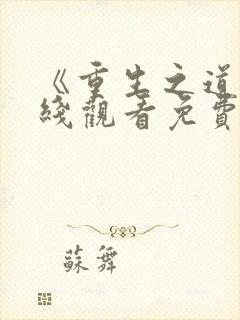 《重生之道
綫觀看免費
蘇舞